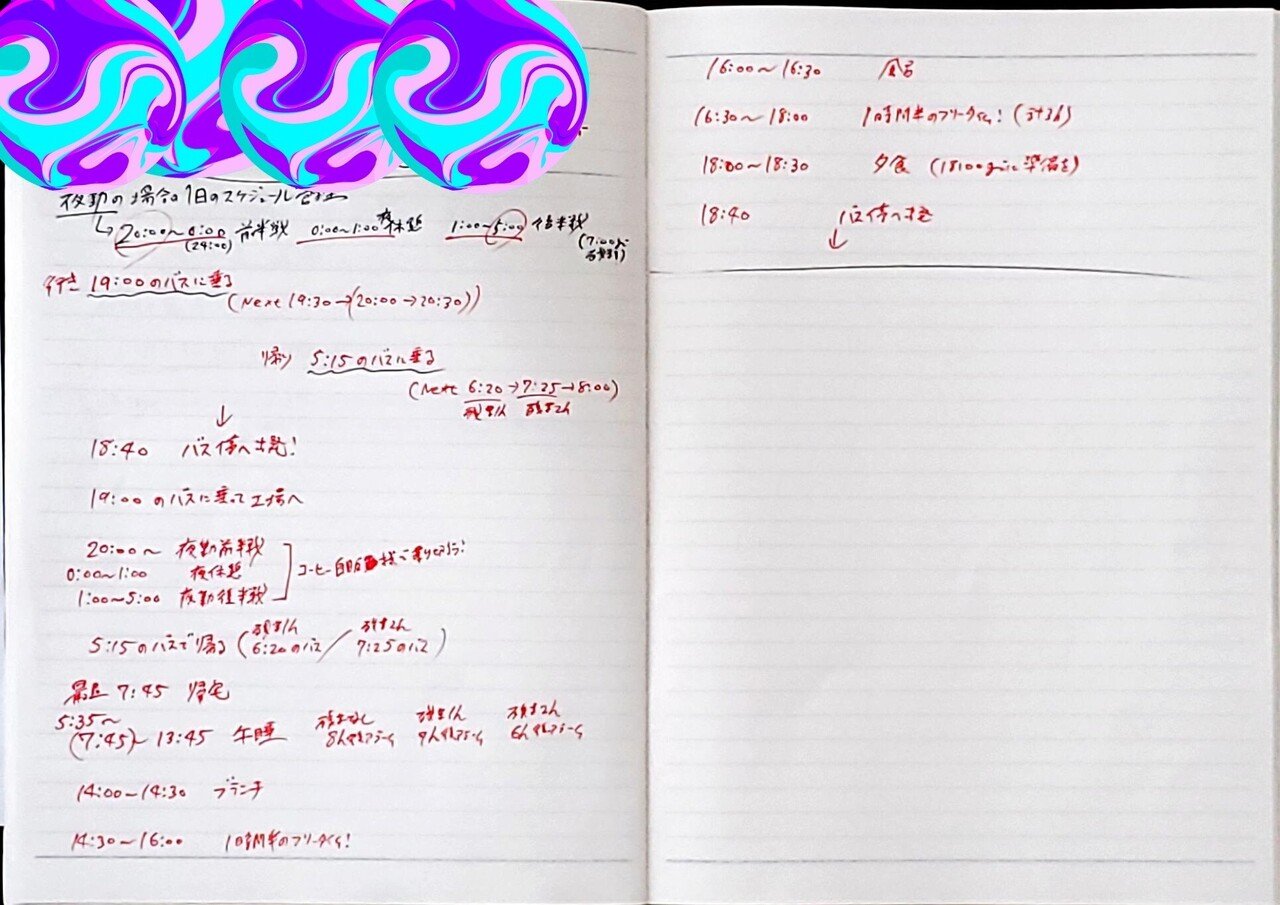 夜勤の場合の1日のスケジュール
↳ 20:00〜0:00 前半戦 0:00〜1:00 夜休憩 1:00〜5:00 後半戦
(24:00)
(7:00まで
行き 19:00のバスに乗る
(Next 19:30→(20:00→20:30))
帰り 5:15のバスに乗る
(Next 6:20→7:25→8:00)
残業1h 残業2h
↓
18:40 バス停へ出発!
19:00のバスに乗って工場へ
20:00〜 夜勤前半戦
0:00〜1:00 夜休憩
1:00〜5:00 夜勤後半戦
コーヒー自販機で乗りきろう!
残業1h 残業2h
5:15のバスで帰る (6:20のバス/7:25のバス)
7:45 帰宅
5:35〜
(7:45)〜13:45 午睡
残業なし 残業1h 残業2h
14:00〜14:30 ブランチ
14:30〜16:00 1時間半のフリータイム!
16:00〜16:30 風呂
16:30〜18:00 1時間半のフリータイム! (計3h)
18:00〜18:30 夕食 (18:00までに準備を)
18:40 バス停へ出発
↓